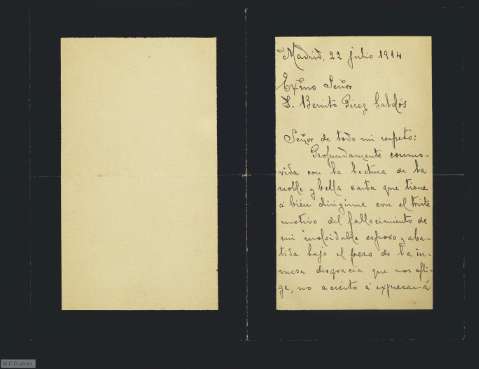 Madrid, 22 julio 1914
Exmo Señor
D. Benito Pérez Galdós
Señor de todo mi respeto:
Profundamente conmo-
vida con la lectura de la
noble y bella carta que tiene
a bien dirigirme con el triste
motivo del fallecimiento de
mi inolvidable esposo y aba-
tida bajo el peso de la in-
mensa desgracia que nos afli-
ge, no acierto á expresar á